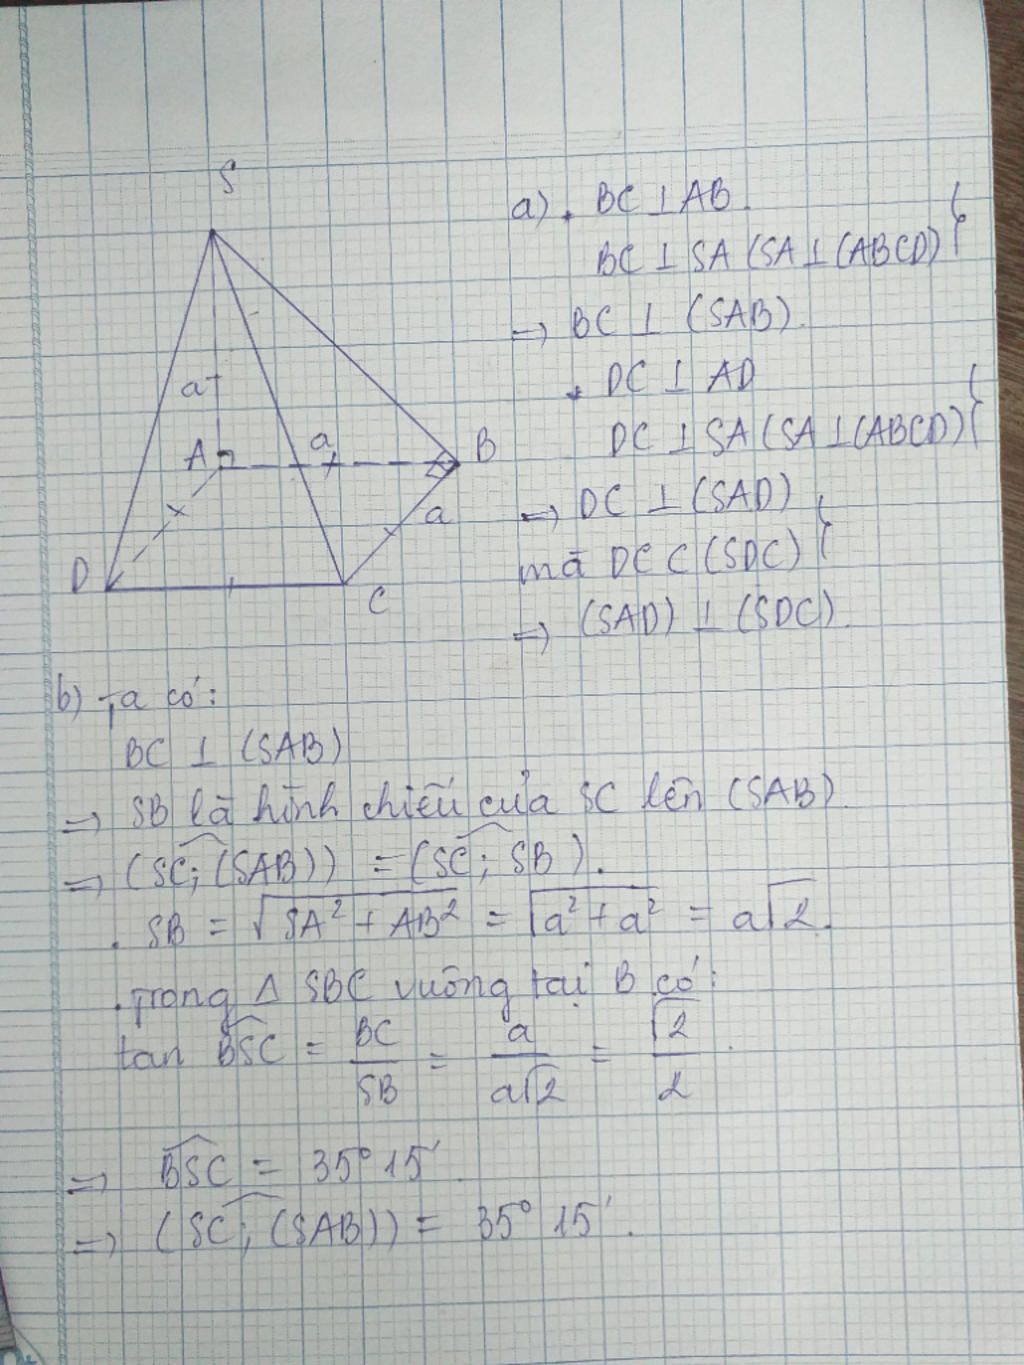 S
a
A
a
B
a
D
C
a) . BC ⊥ AB.
BC ⊥ SA (SA ⊥ (ABCD) }
=> BC ⊥ (SAB).
* DC ⊥ AD
DC ⊥ SA (SA ⊥ (ABCD) }
=> DC ⊥ (SAD)
mà DC ⊂ (SDC) }
=> (SAD) ⊥ (SDC).
b) Ta có:
BC ⊥ (SAB)
=> SB là hình chiếu của SC lên (SAB).
=> (SC; (SAB)) = (SC; SB).
. SB = √(SA² + AB²) = √(a² + a²) = a√2.
. Trong Δ SBC vuông tại B có:
tan BSC = BC/SB = a/a√2 = √2/2.
=> BSC = 35° 15'.
=> (SC; (SAB)) = 35° 15'.